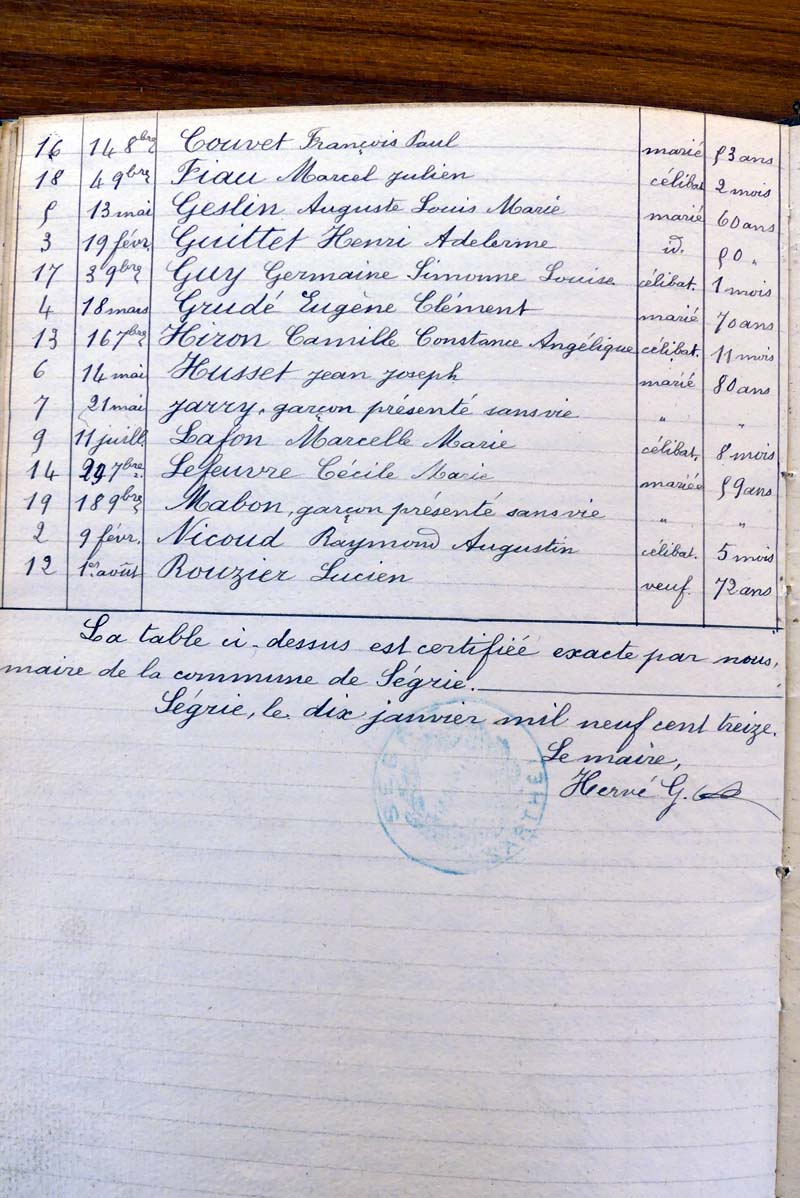 16 14 8bre Couvet François Paul marié 53 ans
18 4 9bre Fiau Marcel Julien célibat. 2 mois
5 13 mai Geslin Auguste Louis Marie marié 60 ans
3 19 févr. Guittet Henri Adelerme id. 50 "
17 3 9bre Guy Germaine Simonne Louise célibat. 1 mois
4 18 mars Grudé Eugène Clément marié 70 ans
13 16 7bre Hiron Camille Constance Angélique célibat. 11 mois
6 14 mai Husset Jean Joseph marié 80 ans
7 21 mai Jarry, garçon présenté sans vie " "
9 11 juill. Lafon Marcelle Marie célibat. 8 mois
14 29 7bre Lefeuvre Cécile Marie mariée 59 ans
19 18 9bre Mabon, garçon présenté sans vie " "
2 9 févr. Nicoud Raymond Augustin célibat. 5 mois
12 1er août Rouzier Lucien veuf 72 ans
La table ci-dessus est certifiée exacte par nous,
maire de la commune de Ségrie.
Ségrie, le dix janvier mil neuf cent treize.
Le maire,
Hervé G.
SARTHE